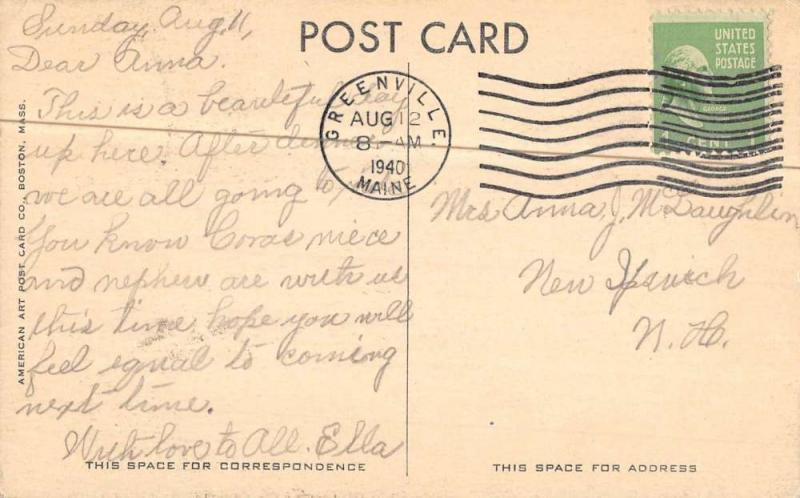 POST CARD
Sunday, Aug. 11,
Dear Anna.
This is a beautiful day
up here. After dinner
we are all going to
You know Coras niece
and nephew are with us
this time. hope you will
feel equal to coming
next time.
With love to All. Ella
THIS SPACE FOR CORRESPONDENCE
AMERICAN ART POST CARD CO., BOSTON, MASS.
GREENVILLE.
AUG 12
8-AM
1940
MAINE
UNITED
STATES
POSTAGE
1 CENT 1
Mrs Anna J. McLaughlin
New Ipswich
N. H.
THIS SPACE FOR ADDRESS